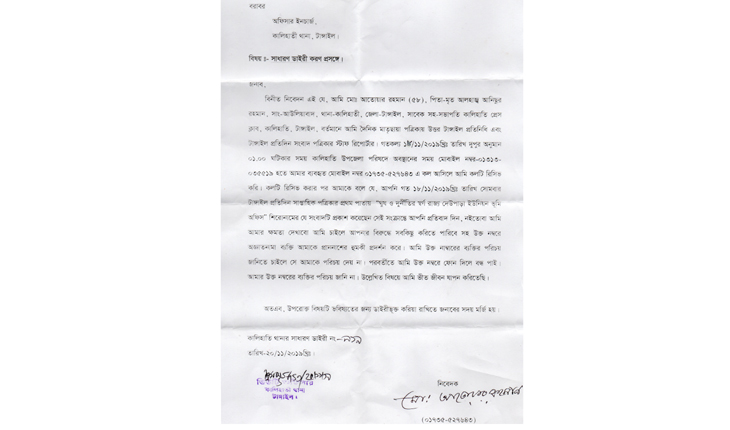 বরাবর
অফিসার ইনচার্জ,
কালিহাতী থানা, টাঙ্গাইল।
বিষয় ঃ- সাধারণ ডাইরী করণ প্রসঙ্গে।
জনাব,
বিনীত নিবেদন এই যে, আমি মোঃ আতোয়ার রহমান (৫৮), পিতা-মৃত আলহাজ্ব আনিছুর
রহমান, সাং-আউলিয়াবাদ, থানা-কালিহাতী, জেলা-টাঙ্গাইল, সাবেক সহ-সভাপতি কালিহাতি প্রেস
ক্লাব, কালিহাতি, টাঙ্গাইল, বর্তমানে আমি দৈনিক মাতৃছায়া পত্রিকায় উত্তর টাঙ্গাইল প্রতিনিধি এবং
টাঙ্গাইল প্রতিদিন সংবাদ পত্রিকার স্টাফ রিপোর্টার। গতকল্য /১১/২০১৯খ্রিঃ তারিখ দুপুর অনুমান
০১.০০ ঘটিকার সময় কালিহাতি উপজেলা পরিষদে অবস্থানের সময় মোবাইল নম্বর-০১৩১৩-
০৩৫৫১৯ হতে আমার ব্যবহৃত মোবাইল নম্বর ০১৭৩৫-৫২৭৬৪৩ এ কল আসিলে আমি কলটি রিসিভ
করি। কলটি রিসিভ করার পর আমাকে বলে যে, আপনি গত ১৮/১১/২০১৯খ্রিঃ তারিখ সোমবার
টাঙ্গাইল প্রতিদিন সাপ্তাহিক পত্রিকার প্রথম পাতায় "ঘুষ ও দুর্নীতির স্বর্গ রাজ্য দেউপাড়া ইউনিয়ন ভূমি
অফিস" শিরোনামের যে সংবাদটি প্রকাশ করেছেন সেই সংক্রান্তে আপনি প্রতিবাদ দিন, নইতোবা আমি
আমার ক্ষমতা দেখাবো আমি চাইলে আপনার বিরুদ্ধে সবকিছু করিতে পারিবে সহ উক্ত নম্বরে
অজ্ঞাতনামা ব্যক্তি আমাকে প্রাননাশের হুমকী প্রদর্শন করে। আমি উক্ত নাম্বারের ব্যক্তির পরিচয়
জানিতে চাইলে সে আমাকে পরিচয় দেয় না। পরবর্তীতে আমি উক্ত নম্বরে ফোন দিলে বন্ধ পাই।
আমার উক্ত নম্বরের ব্যক্তির পরিচয় জানি না। উল্লেখিত বিষয়ে আমি ভীত জীবন যাপন করিতেছি।
অতএব, উপরোক্ত বিষয়টি ভবিষ্যতের জন্য ডাইরীভুক্ত করিয়া রাখিতে জনাবের সদয় মর্জি হয়।
কালিহাতি থানার সাধারণ ডাইরী নং-
তারিখ-২০/১১/২০১৯খ্রিঃ।
কালিহাতী থানা
টাঙ্গাইল।
নিবেদক
মোঃ আতোয়ার রহমান
(০১৭৩৫-৫২৭৬৪৩)